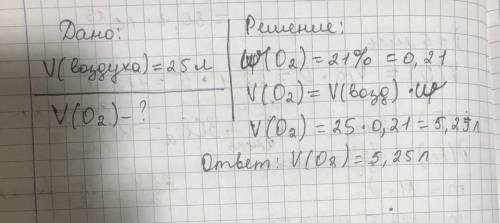 Дано:
V(воздуха)=25л
V(O₂)-?
Решение:
φ(O₂)=21%=0,21
V(O₂)=V(возд)·φ
V(O₂)=25·0,21=5,25л
Ответ: V(O₂)=5,25л